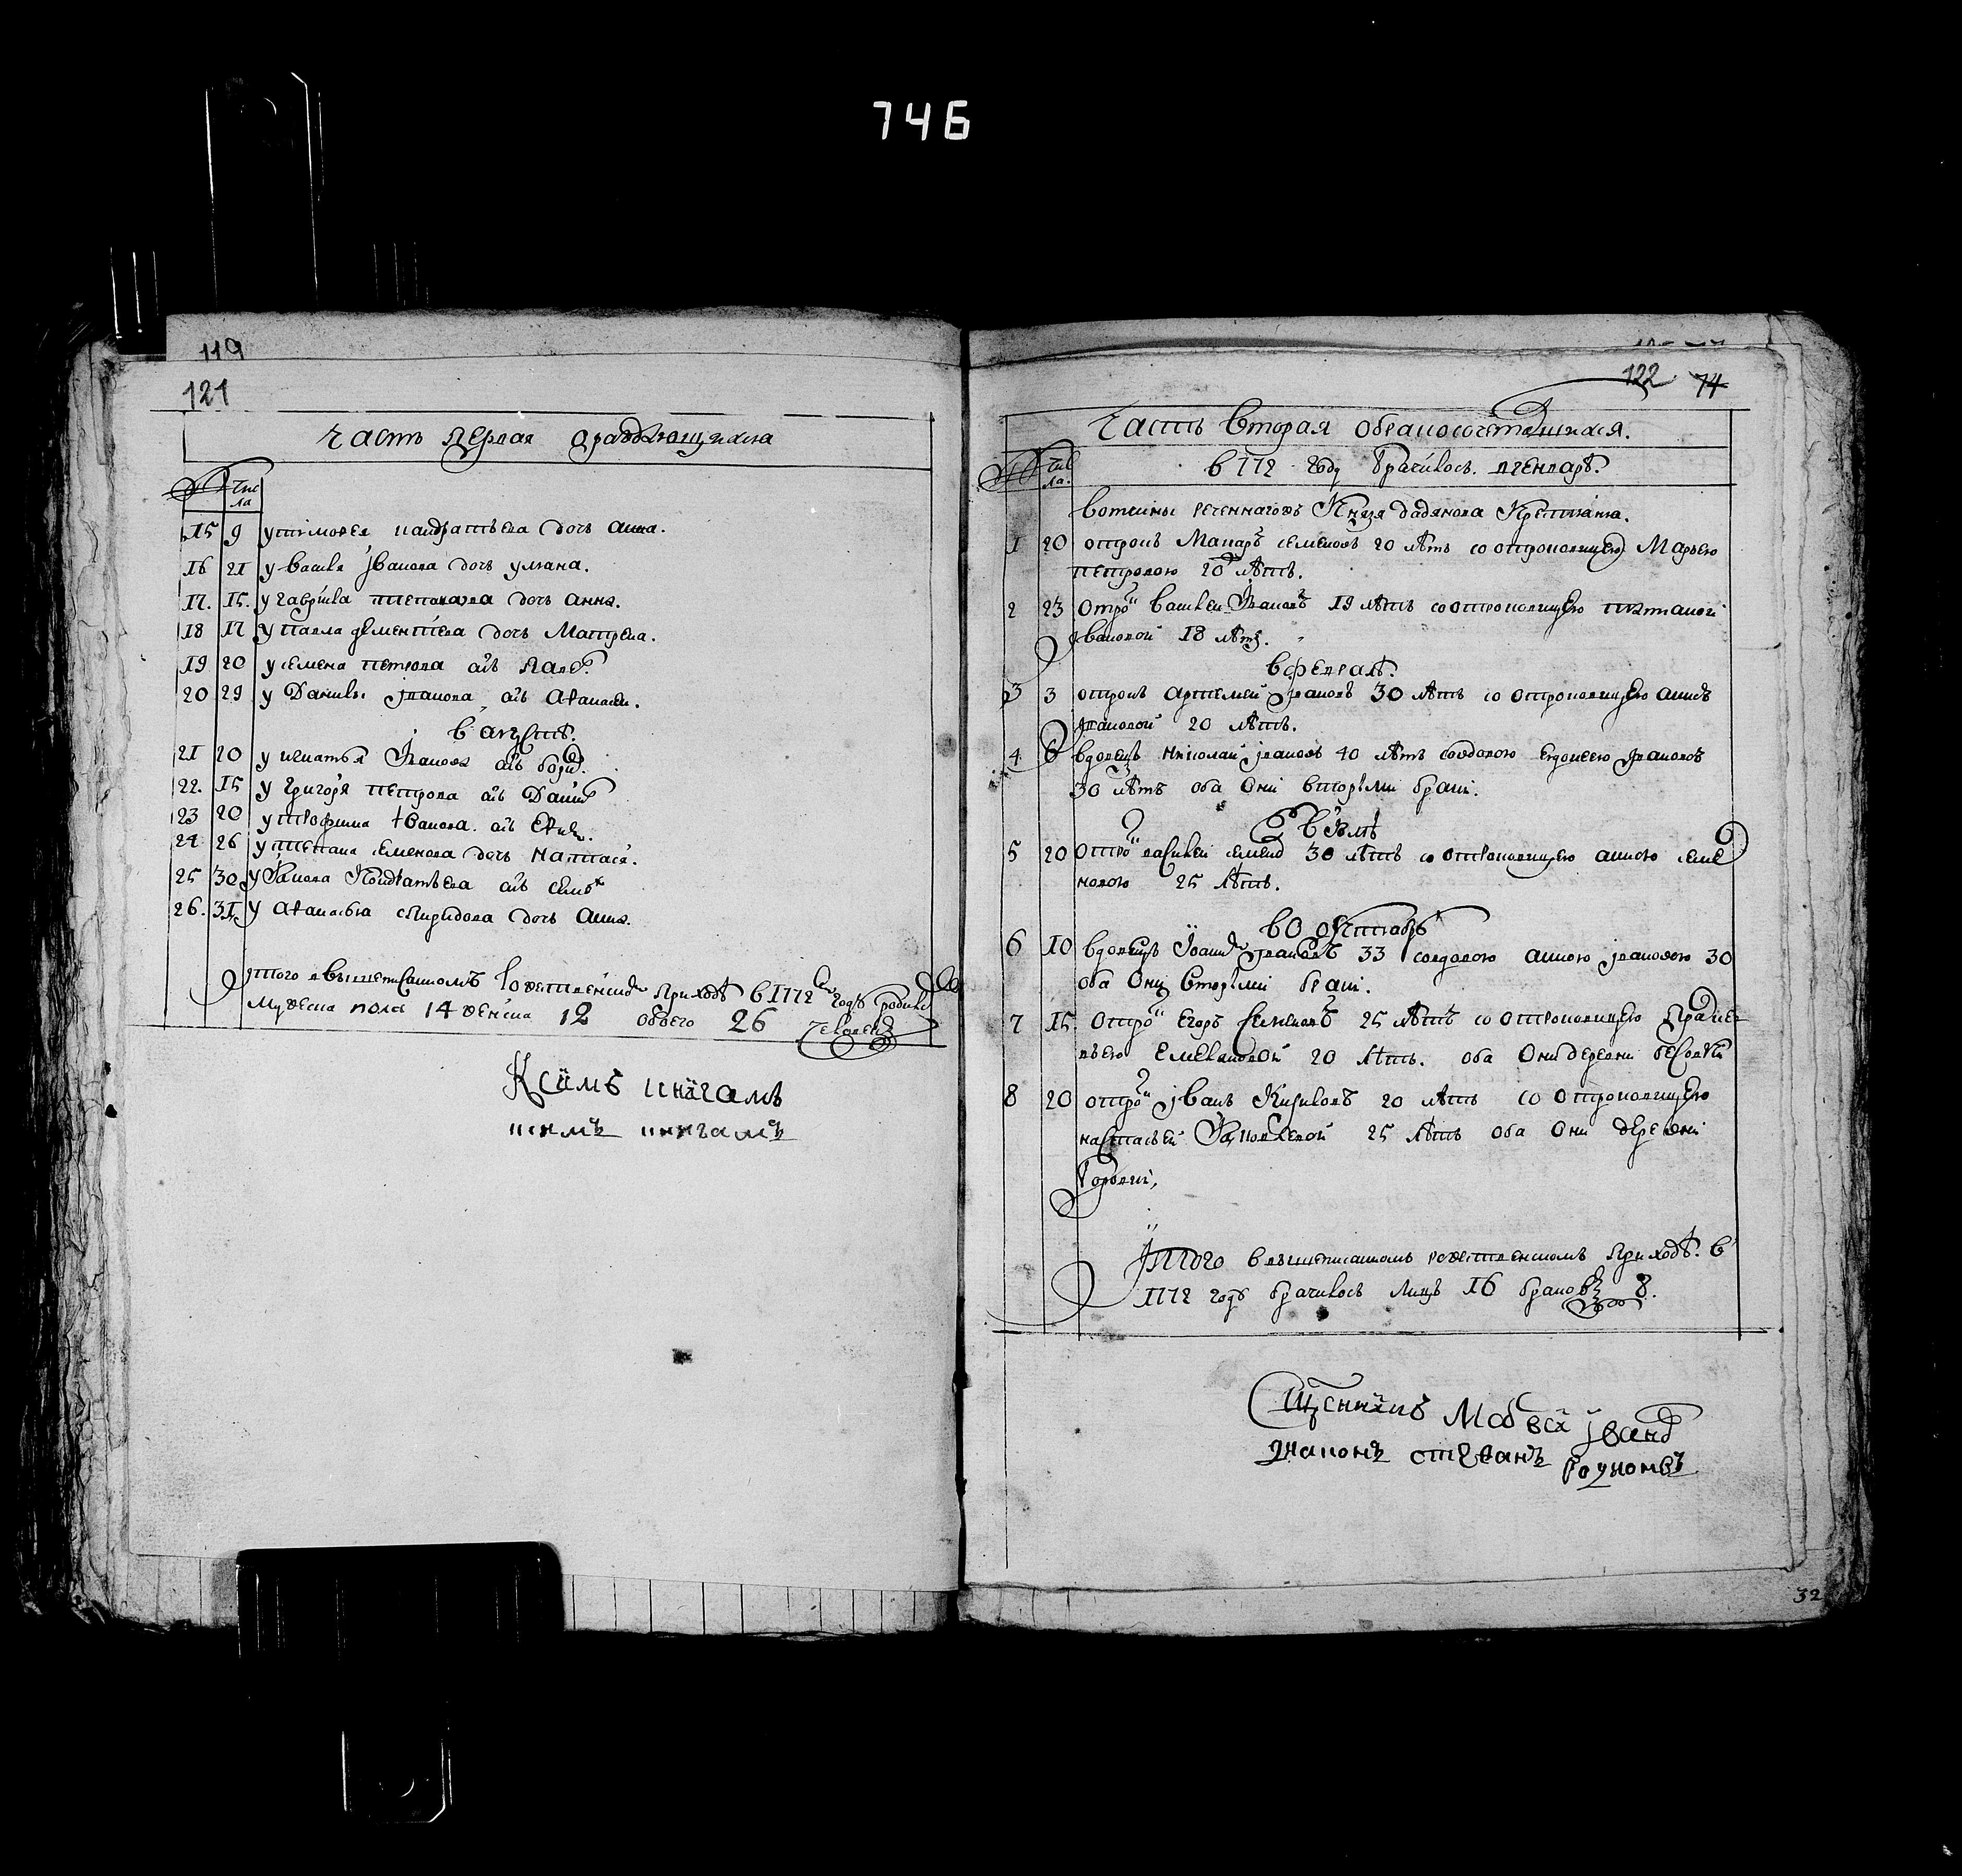 746
119
121
часть первая ораждающихся
числа
15 9 у тимофея кандратьева дочь анна.
16 21 у василя јванова дочь улиана.
17. 15. у гаврила дочь анна.
18 17 у павла дементиева дочь Матрена.
19 20 у семена петрова сынъ
20 29 у Данилы јванова сынъ аѳанасей.
в августѣ.
21 20 у игнатья јванова сынъ
22. 15 у григорья петрова сынъ
23 20 у трофима јванова сынъ
24 26 у степана семенова дочь настася.
25 30 у сынъ
26. 31 у аѳанасья спиридова дочь анна.
јтого в вышеписанномъ рожественском приходѣ в 1772 годѣ родилось
мужеска пола 14 женска 12 обоего 26 человекъ
К симъ книгамъ
симъ книгамъ
122 74
Часть вторая обракосочетавшихся.
числа. в 772 году брачилось. в генварѣ.
вотчины реченнагожъ Князя дадянова Крестьяня.
1 20 отрокъ Макаръ семеновъ 20 лѣтъ со отроковицею Марьею
петровою 20 лѣтъ.
2 23 отрокъ василей јвановъ 19 лѣтъ со отроковицею татианой
јвановой 18 лѣтъ.
в февралѣ.
3 3 отрокъ артемей јвановъ 30 лѣтъ со отроковицею анною
јвановой 20 лѣтъ.
4 6 вдовецъ николай јвановъ 40 лѣтъ со вдовою евдокеею јвановою
30 лѣтъ оба они вторыми браки.
5 20 отрокъ василей семенов 30 лѣтъ со отроковицею анною семе
новою 25 лѣтъ.
во октнабрѣ
6 10 вдовецъ јвановъ 33 со вдовою анною јвановою 30
оба они вторыми браки.
7 15 отрокъ Егоръ семеновъ 25 лѣтъ со отроковицею праско
вьею Емельяновой 20 лѣтъ. оба они деревни
8 20 отрокъ јванъ Кириловъ 20 лѣтъ со отроковицею
настасьей Яковлевой 25 лѣтъ оба они деревни
јтого в вышеписанномъ рожественскомъ приходѣ. в
1772 годѣ брачилось лицъ 16 браковъ 8.
сщенникъ Матвей јванов
диаконъ стеѳанъ
32